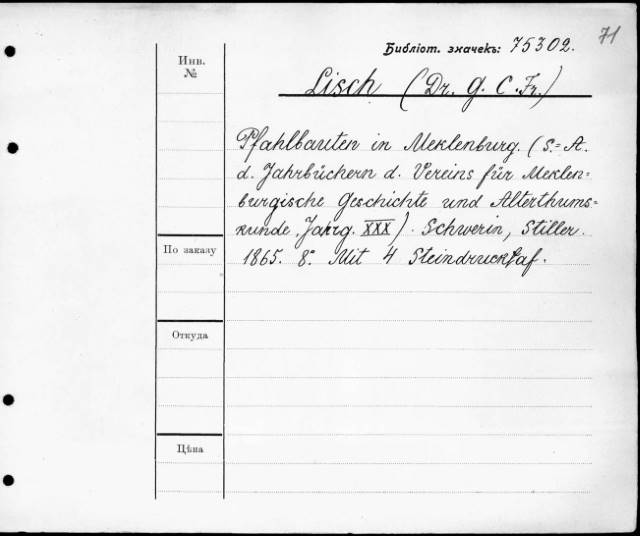 71
Библіот. значекъ: 75302.
Инв.
№
Lisch (Dr. G. C. Fr.)
Pfahlbauten in Meklenburg. (S.=A.
d. Jahrbüchern d. Vereins für Meklen=
burgische Geschichte und Alterthums=
kunde, Jahrg. XXX). Schwerin, Stiller.
По заказу
1865. 8°. Mit 4 Steindrucktaf.
Откуда
Цѣна